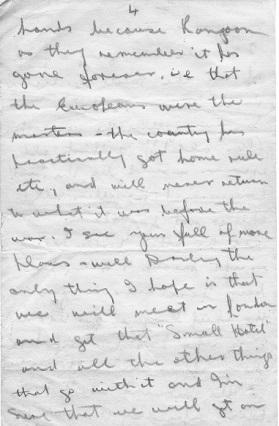 4
hands because Rangoon
as they remember it has
gone forever, i.e that
the Europeans were the
masters - the country has
practically got home rule
etc, and will never return
to what it was before the
war. I see your full of more
plans - well Darling the
only thing I hope is that
we will meet in London
and get that "Small Hotel
and all the other things
that go with it and I'm
sure that we will get on